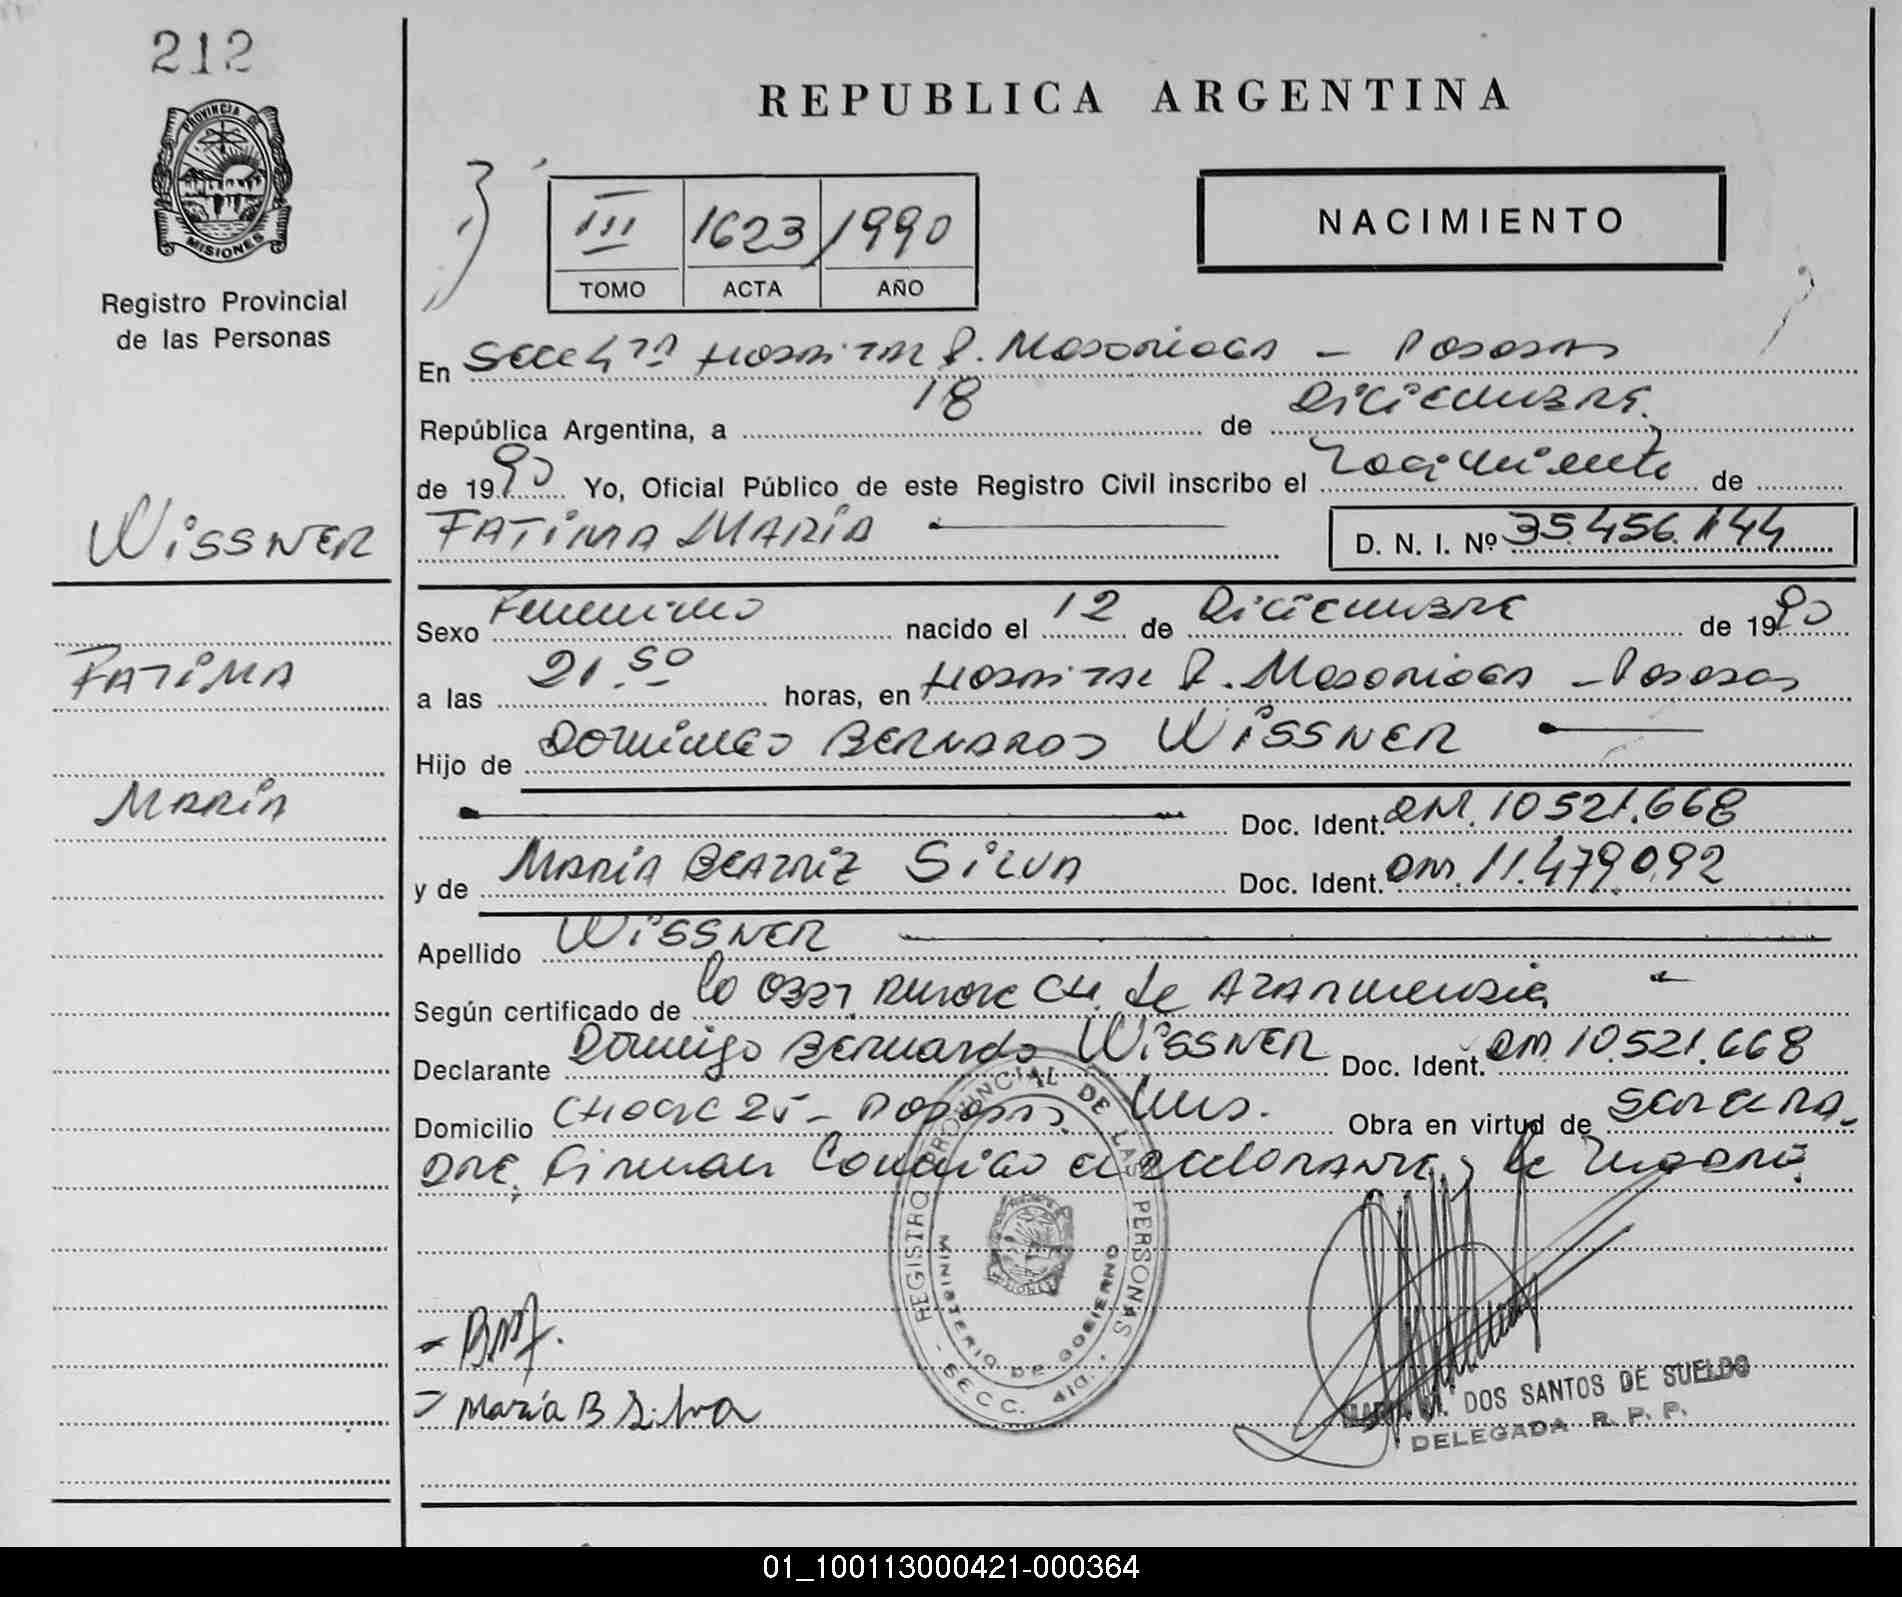 212
PROVINCIA DE
MISIONES
Registro Provincial
de las Personas
REPUBLICA ARGENTINA
III 1623/1990
TOMO ACTA AÑO
NACIMIENTO
En Secc 4ta Hospital R. Madariaga - Posadas
República Argentina, a 18 de Diciembre
de 1990 Yo, Oficial Público de este Registro Civil inscribo el Nacimiento de
WISSNER
FATIMA MARIA D. N. I. Nº 35.456.144
Sexo Femenino nacido el 12 de Diciembre de 1990
FATIMA
a las 21.50 horas, en Hospital R. Madariaga - Posadas
Hijo de DOMINGO BERNARDO WISSNER
MARIA
Doc. Ident. DNI. 10.521.668
y de MARIA BEATRIZ SILVA Doc. Ident. DNI. 11.479.092
Apellido WISSNER
Según certificado de la Obst.
Declarante Domingo Bernardo WISSNER Doc. Ident. DNI. 10.521.668
Domicilio Chacra 25 - Posadas, Mns. Obra en virtud de ser el Pa-
dre, Firman Conmigo el declarante y la Madre.
REGISTRO PROVINCIAL DE LAS PERSONAS
MINISTERIO DE GOBIERNO
SECC. 4ta.
María B Silva
DOS SANTOS DE SUELDO
DELEGADA R. P. P.
01_100113000421-000364